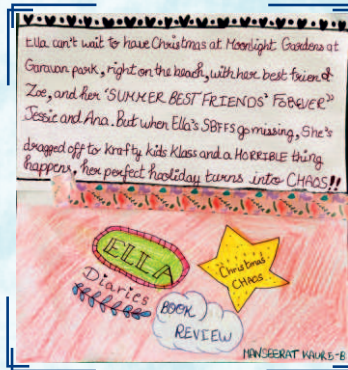 Ella can't wait to have Christmas at Moonlight Gardens at
Garavan park, right on the beach, with her best friend
Zoe, and her 'SUMMER BEST FRIENDS' FOREVER"
Jessie and Ana. But when Ella's SBFFs go missing, She's
dragged off to Krafty kids Klass and a HORRIBLE thing
happens, her perfect hasliday turns into CHAOS!!
ELLA
Diaries
Christmas
CHAOS
BOOK
REVIEW
MANSEERAT KAUR 5-B